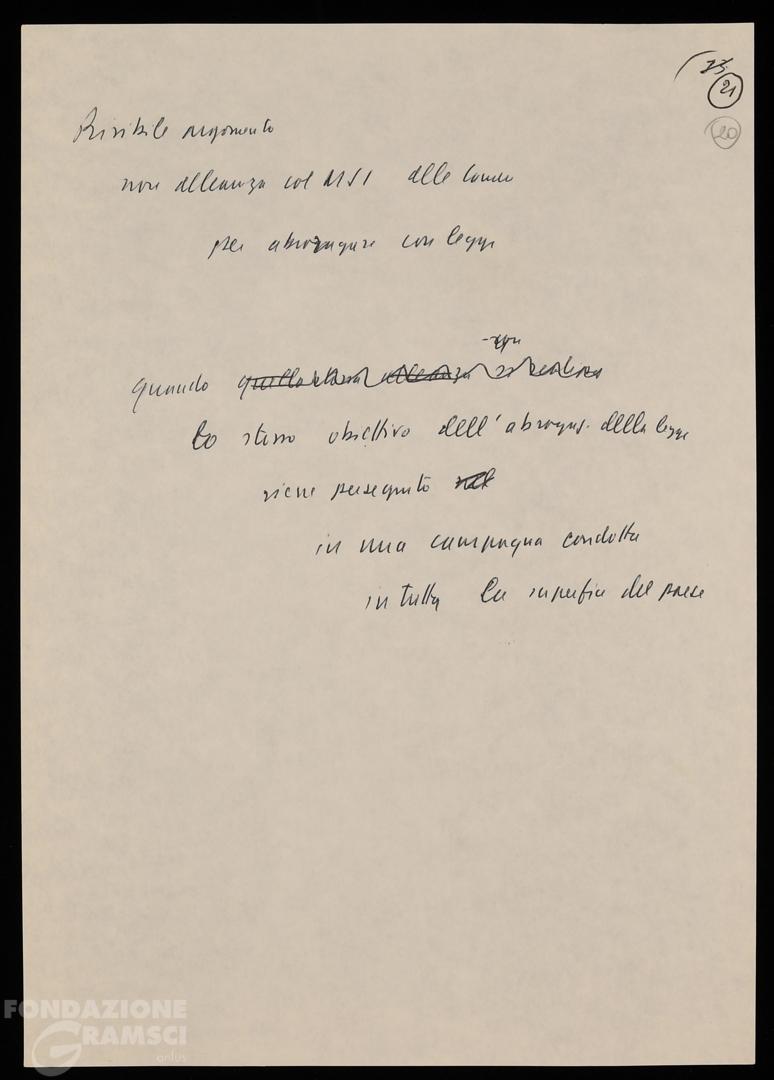 23.
21
20
Risibile argomento
non alleanza col MSI alle Camere
per abrogare con legge
quando quella stessa alleanza si realizza
lo stesso obiettivo dell'abrogaz. della legge
viene perseguito nel
in una campagna condotta
in tutta la superficie del paese
FONDAZIONE
GRAMSCI
onlus